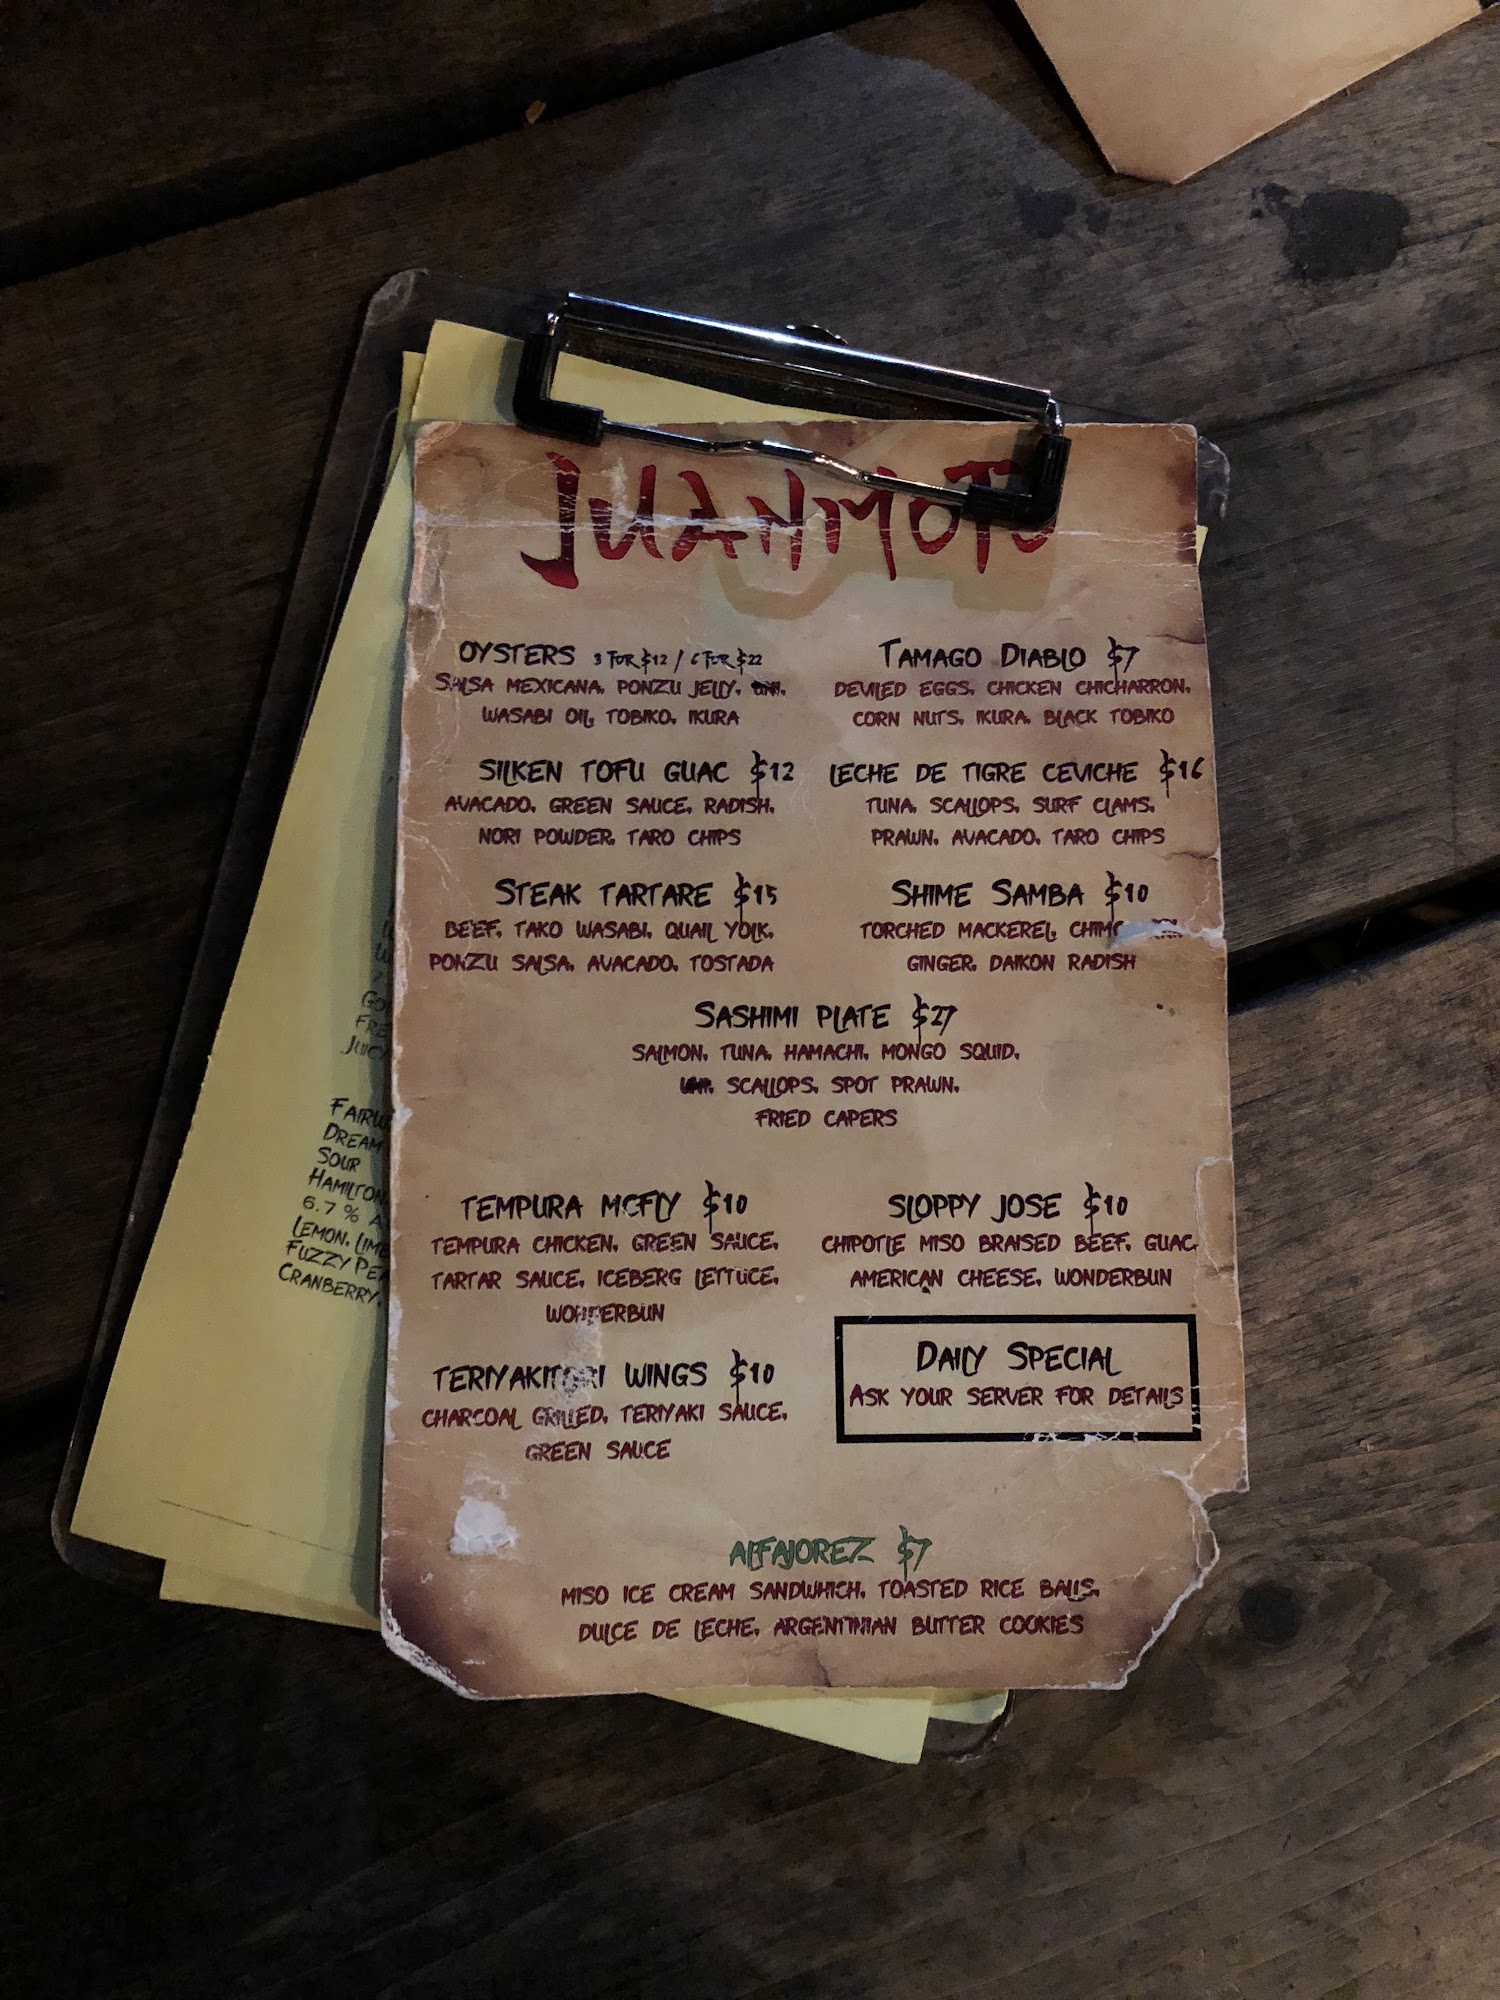 JUANMOTO
OYSTERS 3 FOR $12 / 6 FOR $22
SALSA MEXICANA, PONZU JELLY,
WASABI OIL, TOBIKO, IKURA
TAMAGO DIABLO $7
DEVILED EGGS, CHICKEN CHICHARRON,
CORN NUTS, IKURA, BLACK TOBIKO
SILKEN TOFU GUAC $12
AVACADO, GREEN SAUCE, RADISH,
NORI POWDER, TARO CHIPS
LECHE DE TIGRE CEVICHE $16
TUNA, SCALLOPS, SURF CLAMS,
PRAWN, AVACADO, TARO CHIPS
STEAK TARTARE $15
BEEF, TAKO WASABI, QUAIL YOLK,
PONZU SALSA, AVACADO, TOSTADA
SHIME SAMBA $10
TORCHED MACKEREL,
GINGER, DAIKON RADISH
SASHIMI PLATE $27
SALMON, TUNA, HAMACHI, MONGO SQUID,
SCALLOPS, SPOT PRAWN,
FRIED CAPERS
TEMPURA MCFLY $10
TEMPURA CHICKEN, GREEN SAUCE,
TARTAR SAUCE, ICEBERG LETTUCE,
WONDERBUN
SLOPPY JOSE $10
CHIPOTLE MISO BRAISED BEEF, GUAC,
AMERICAN CHEESE, WONDERBUN
TERIYAKITORI WINGS $10
CHARCOAL GRILLED, TERIYAKI SAUCE,
GREEN SAUCE
DAILY SPECIAL
ASK YOUR SERVER FOR DETAILS
ALFAJOREZ $7
MISO ICE CREAM SANDWHICH, TOASTED RICE BALLS,
DULCE DE LECHE, ARGENTINIAN BUTTER COOKIES
DREAM
SOUR
HAMILTON
6.7 %
LEMON, LIME
FUZZY
CRANBERRY,